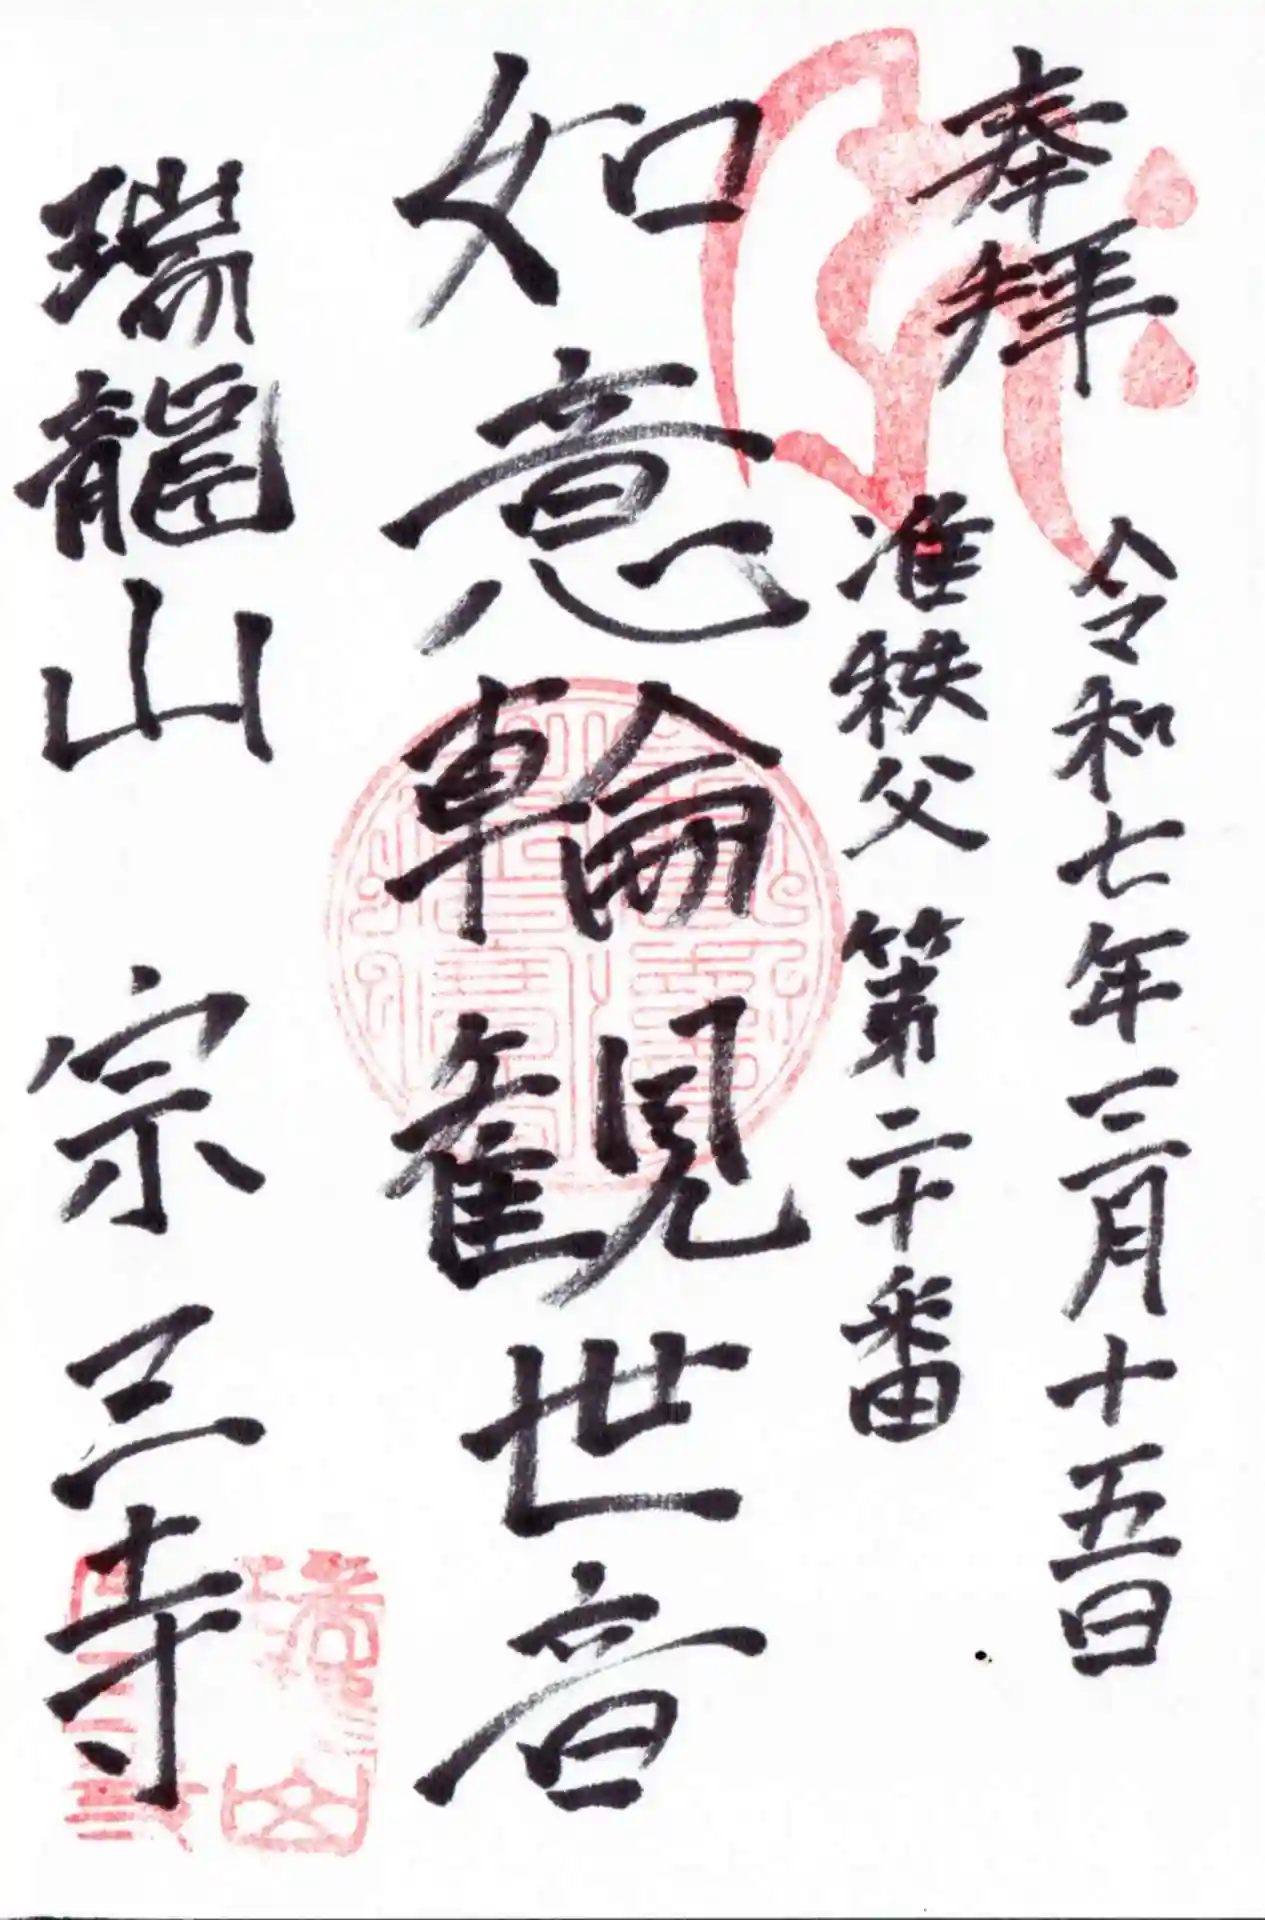 奉拝
令和七年三月十五日
准秩父 第二十番
如意輪観世音
瑞龍山 宗三寺